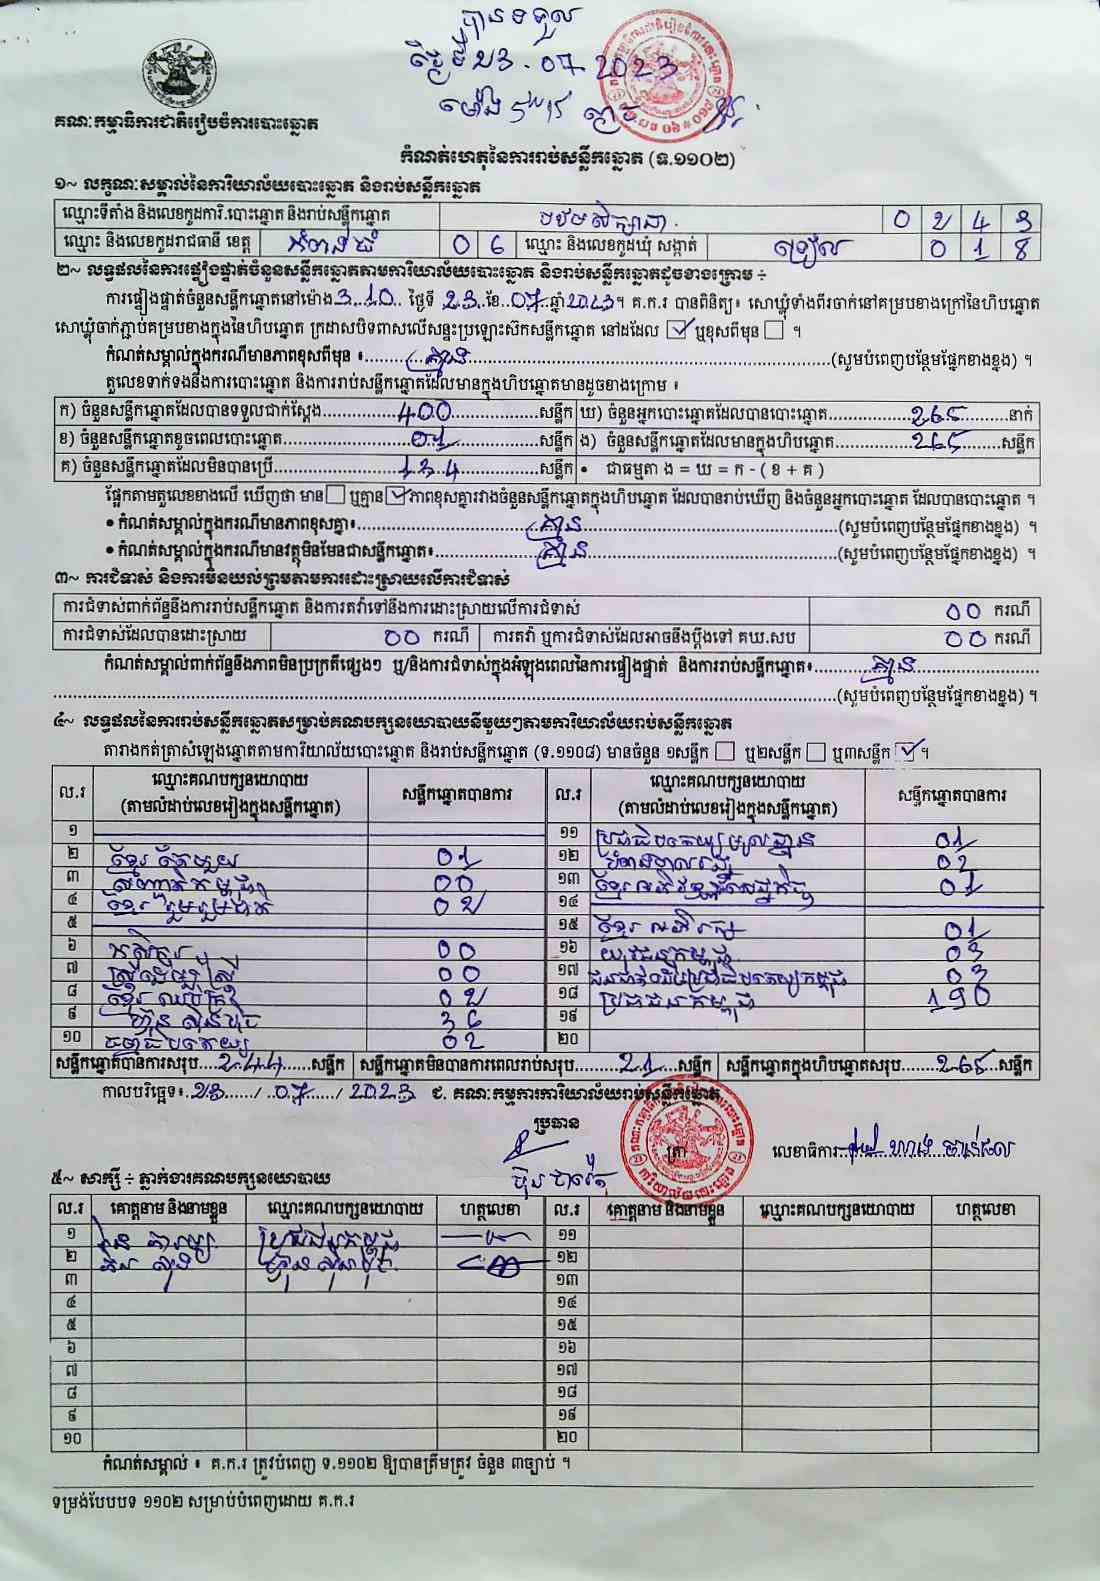 បានទទួល
ថ្ងៃទី 23.07.2023
ម៉ោង
គណៈកម្មាធិការជាតិរៀបចំការបោះឆ្នោត
កំណត់ហេតុនៃការរាប់សន្លឹកឆ្នោត (ទ.១១០២)
១~ លក្ខណៈសម្គាល់នៃការិយាល័យបោះឆ្នោត និងរាប់សន្លឹកឆ្នោត
ឈ្មោះទីតាំង និងលេខកូដការិ.បោះឆ្នោត និងរាប់សន្លឹកឆ្នោត បឋមសិក្សា 0 2 4 3
ឈ្មោះ និងលេខកូដរាជធានី ខេត្ត កំពង់ធំ 0 6 ឈ្មោះ និងលេខកូដឃុំ សង្កាត់ 0 1 8
២~ លទ្ធផលនៃការផ្ទៀងផ្ទាត់ចំនួនសន្លឹកឆ្នោតតាមការិយាល័យបោះឆ្នោត និងរាប់សន្លឹកឆ្នោតដូចខាងក្រោម ÷
ការផ្ទៀងផ្ទាត់ចំនួនសន្លឹកឆ្នោតនៅម៉ោង 3:10 ថ្ងៃទី 23 ខែ 07 ឆ្នាំ 2023។ គ.ក.រ បានពិនិត្យ៖ សោឃ្លុំទាំងពីរចាក់នៅគម្របខាងក្រៅនៃហិបឆ្នោត
សោឃ្លុំចាក់ភ្ជាប់គម្របខាងក្នុងនៃហិបឆ្នោត ក្រដាសបិទពាសលើសន្ទះប្រឡោះស៊កសន្លឹកឆ្នោត នៅដដែល ☑ ឬខុសពីមុន ☐ ។
កំណត់សម្គាល់ក្នុងករណីមានភាពខុសពីមុន ៖ គ្មាន (សូមបំពេញបន្ថែមផ្នែកខាងខ្នង) ។
តួលេខទាក់ទងនឹងការបោះឆ្នោត និងការរាប់សន្លឹកឆ្នោតដែលមានក្នុងហិបឆ្នោតមានដូចខាងក្រោម ៖
ក) ចំនួនសន្លឹកឆ្នោតដែលបានទទួលជាក់ស្តែង 400 សន្លឹក ឃ) ចំនួនអ្នកបោះឆ្នោតដែលបានបោះឆ្នោត 265 នាក់
ខ) ចំនួនសន្លឹកឆ្នោតខូចពេលបោះឆ្នោត 01 សន្លឹក ង) ចំនួនសន្លឹកឆ្នោតដែលមានក្នុងហិបឆ្នោត 265 សន្លឹក
គ) ចំនួនសន្លឹកឆ្នោតដែលមិនបានប្រើ 134 សន្លឹក • ជាធម្មតា ង = ឃ = ក - ( ខ + គ )
ផ្អែកតាមតួលេខខាងលើ ឃើញថា មាន ☐ ឬគ្មាន ☑ ភាពខុសគ្នារវាងចំនួនសន្លឹកឆ្នោតក្នុងហិបឆ្នោត ដែលបានរាប់ឃើញ និងចំនួនអ្នកបោះឆ្នោត ដែលបានបោះឆ្នោត ។
• កំណត់សម្គាល់ក្នុងករណីមានភាពខុសគ្នា៖ គ្មាន (សូមបំពេញបន្ថែមផ្នែកខាងខ្នង) ។
• កំណត់សម្គាល់ក្នុងករណីមានវត្ថុមិនមែនជាសន្លឹកឆ្នោត៖ គ្មាន (សូមបំពេញបន្ថែមផ្នែកខាងខ្នង) ។
៣~ ការជំទាស់ និងការមិនយល់ព្រមតាមការដោះស្រាយលើការជំទាស់
ការជំទាស់ពាក់ព័ន្ធនឹងការរាប់សន្លឹកឆ្នោត និងការតវ៉ាទៅនឹងការដោះស្រាយលើការជំទាស់ 00 ករណី
ការជំទាស់ដែលបានដោះស្រាយ 00 ករណី ការតវ៉ា ឬការជំទាស់ដែលអាចនឹងប្តឹងទៅ គឃ.សប 00 ករណី
កំណត់សម្គាល់ពាក់ព័ន្ធនឹងភាពមិនប្រក្រតីផ្សេងៗ ឬ/និងការជំទាស់ក្នុងអំឡុងពេលនៃការផ្ទៀងផ្ទាត់ និងការរាប់សន្លឹកឆ្នោត៖ គ្មាន
(សូមបំពេញបន្ថែមផ្នែកខាងខ្នង) ។
៤~ លទ្ធផលនៃការរាប់សន្លឹកឆ្នោតសម្រាប់គណបក្សនយោបាយនីមួយៗតាមការិយាល័យរាប់សន្លឹកឆ្នោត
តារាងកត់ត្រាសំឡេងឆ្នោតតាមការិយាល័យបោះឆ្នោត និងរាប់សន្លឹកឆ្នោត (ទ.១១០៨) មានចំនួន ១សន្លឹក ☐ ឬ២សន្លឹក ☐ ឬ៣សន្លឹក ☑ ។
ល.រ ឈ្មោះគណបក្សនយោបាយ (តាមលំដាប់លេខរៀងក្នុងសន្លឹកឆ្នោត) សន្លឹកឆ្នោតបានការ ល.រ ឈ្មោះគណបក្សនយោបាយ (តាមលំដាប់លេខរៀងក្នុងសន្លឹកឆ្នោត) សន្លឹកឆ្នោតបានការ
១ ១១ ប្រជាធិបតេយ្យមូលដ្ឋាន 01
២ ខ្មែរតែមួយ 01 ១២ 02
៣ សញ្ជាតិកម្ពុជា 00 ១៣ ខ្មែរអភិវឌ្ឍន៍សេដ្ឋកិច្ច 01
៤ ខ្មែររួបរួមជាតិ 02 ១៤
៥ ១៥ ខ្មែរអភិរក្ស 01
៦ 00 ១៦ យុវជនកម្ពុជា 03
៧ ស្រីដើម្បីស្រី 00 ១៧ ជនជាតិដើមប្រជាធិបតេយ្យកម្ពុជា 03
៨ ខ្មែរឈប់ក្រ 02 ១៨ ប្រជាជនកម្ពុជា 190
៩ ហ៊្វុនស៊ិនប៉ិច 36 ១៩
១០ 02 ២០
សន្លឹកឆ្នោតបានការសរុប 244 សន្លឹក សន្លឹកឆ្នោតមិនបានការពេលរាប់សរុប 21 សន្លឹក សន្លឹកឆ្នោតក្នុងហិបឆ្នោតសរុប 265 សន្លឹក
កាលបរិច្ឆេទ៖ 23 / 07 / 2023 ជ. គណៈកម្មការការិយាល័យរាប់សន្លឹកឆ្នោត
ប្រធាន ត្រា លេខាធិការ
៥~ សាក្សី ÷ ភ្នាក់ងារគណបក្សនយោបាយ
ល.រ គោត្តនាម និងនាមខ្លួន ឈ្មោះគណបក្សនយោបាយ ហត្ថលេខា ល.រ គោត្តនាម និងនាមខ្លួន ឈ្មោះគណបក្សនយោបាយ ហត្ថលេខា
១ ប្រជាជនកម្ពុជា ១១
២ ហ៊្វុនស៊ិនប៉ិច ១២
៣ ១៣
៤ ១៤
៥ ១៥
៦ ១៦
៧ ១៧
៨ ១៨
៩ ១៩
១០ ២០
កំណត់សម្គាល់ ៖ គ.ក.រ ត្រូវបំពេញ ទ.១១០២ ឱ្យបានត្រឹមត្រូវ ចំនួន ៣ច្បាប់ ។
ទម្រង់បែបបទ ១១០២ សម្រាប់បំពេញដោយ គ.ក.រ